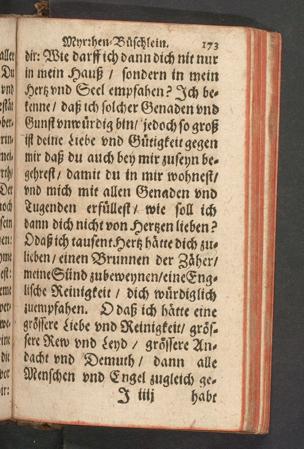 Myrrhen-Büschlein. 173
dir: Wie darff ich dann dich nit nur
in mein Hauß / sondern in mein
Hertz vnd Seel empfahen? Ich be-
kenne / daß ich solcher Genaden vnd
Gunst vnwürdig bin / jedoch so groß
ist deine Liebe vnd Gütigkeit gegen
mir daß du auch bey mir zuseyn be-
gehrest / damit du in mir wohnest /
vnd mich mit allen Genaden vnd
Tugenden erfüllest / wie soll ich
dann dich nicht von Hertzen lieben?
O daß ich tausent Hertz hätte dich zu-
lieben / einen Brunnen der Zäher /
meine Sünd zubeweynen / eine Eng-
lische Reinigkeit / dich würdiglich
zuempfahen. O daß ich hätte eine
grössere Liebe vnd Reinigkeit / grös-
sere Rew vnd Leyd / grössere An-
dacht vnd Demuth / dann alle
Menschen vnd Engel zugleich ge-
J iiij habt